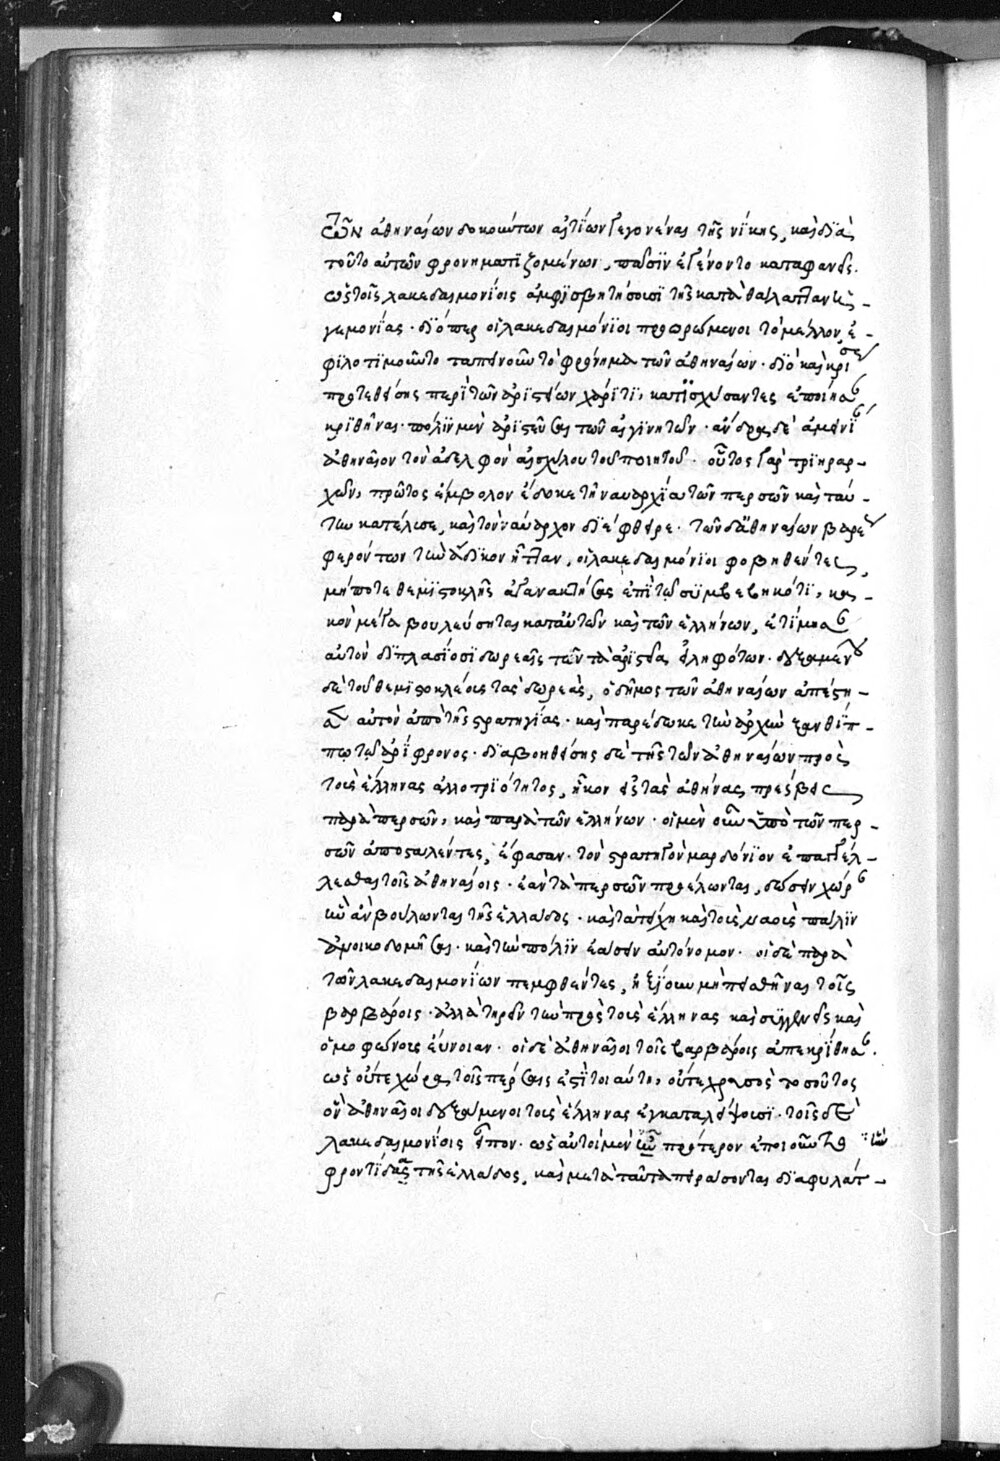 τῶν ἀθηναίων δοκούντων αἰτίων γεγονέναι τῆς νίκης, καὶ διὰ
τοῦτο αὐτῶν φρονηματιζομένων, πᾶσιν ἐγένοντο καταφανεῖς.
ὡς τοῖς λακεδαιμονίοις ἀμφισβητήσουσι τῆς κατὰ θάλατταν ἡ-
γεμονίας. διόπερ οἱ λακεδαιμόνιοι προορώμενοι τὸ μέλλον, ἐ-
φιλοτιμοῦντο ταπεινοῦν τὸ φρόνημα τῶν ἀθηναίων. διὸ καὶ κρίσεως
προτεθείσης περὶ τῶν ἀριστείων χάριτι, κατισχύσαντες ἐποίησαν
κριθῆναι. πόλιν μὲν ἀριστεῦσαι τῶν αἰγινητῶν. ἄνδρας δὲ ἀμεινίαν
ἀθηναῖον τὸν ἀδελφὸν αἰσχύλου τοῦ ποιητοῦ. οὗτος γὰρ τριηραρ-
χῶν, πρῶτος ἔμβολον ἔδωκε τῇ ναυαρχίδι τῶν περσῶν καὶ ταύ-
την κατέδυσε, καὶ τὸν ναύαρχον διέφθειρε. τῶν δ' ἀθηναίων βαρέως
φερόντων τὴν ἄδικον ἧτταν, οἱ λακεδαιμόνιοι φοβηθέντες,
μήποτε θεμιστοκλῆς ἀγανακτήσας ἐπὶ τῷ συμβεβηκότι, κα-
κὸν μέγα βουλεύσηται κατ' αὐτῶν καὶ τῶν ἑλλήνων, ἐτίμησαν
αὐτὸν διπλασίοσι δωρεαῖς τῶν τἀριστεῖα εἰληφότων. δεξαμένου
δὲ τοῦ θεμιστοκλέους τὰς δωρεὰς, ὁ δῆμος τῶν ἀθηναίων ἀπέστη-
σεν αὐτὸν ἀπὸ τῆς στρατηγίας. καὶ παρέδωκε τὴν ἀρχὴν ξανθίπ-
πῳ τῷ ἀρίφρονος. διαβοηθείσης δὲ τῆς τῶν ἀθηναίων πρὸς
τοὺς ἕλληνας ἀλλοτριότητος, ἧκον εἰς τὰς ἀθήνας πρέσβεις
παρὰ περσῶν, καὶ παρὰ τῶν ἑλλήνων. οἱ μὲν οὖν ὑπὸ τῶν περ-
σῶν ἀποσταλέντες, ἔφασαν. τὸν στρατηγὸν μαρδόνιον ἐπαγγέλ-
λεσθαι τοῖς ἀθηναίοις. ἐὰν τὰ περσῶν προέλωνται, δώσειν χώραν
ἣν ἂν βούλωνται τῆς ἑλλάδος. καὶ τὰ τείχη καὶ τοὺς ναοὺς πάλιν
ἀνοικοδομῆσαι. καὶ τὴν πόλιν ἐάσειν αὐτόνομον. οἱ δὲ παρὰ
τῶν λακεδαιμονίων πεμφθέντες, ἠξίουν μὴ πεισθῆναι τοῖς
βαρβάροις. ἀλλὰ τηρεῖν τὴν πρὸς τοὺς ἕλληνας καὶ συγγενεῖς καὶ
ὁμοφώνους εὔνοιαν. οἱ δὲ ἀθηναῖοι τοῖς βαρβάροις ἀπεκρίθησαν.
ὡς οὔτε χώρα τοῖς πέρσαις ἐστὶ τοιαύτη, οὔτε χρυσὸς τοσοῦτος
ὃν ἀθηναῖοι δεξάμενοι τοὺς ἕλληνας ἐγκαταλείψουσι. τοῖς δὲ
λακεδαιμονίοις εἶπον. ὡς αὐτοὶ μὲν ἣν πρότερον ἐποιοῦντο ἣν
φροντίδα τῆς ἑλλάδος, καὶ μετὰ ταῦτα πειράσονται διαφυλάτ-